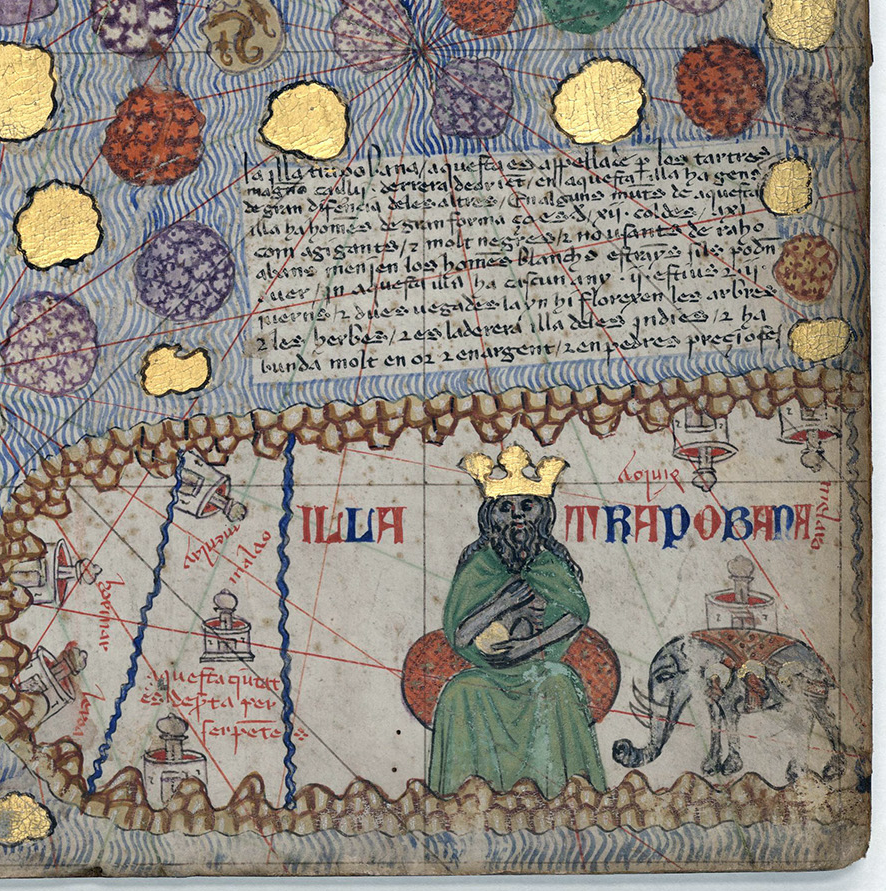 la illa trapobana / aquesta es appellade p los tartres
magno caulij . derrera de orient / en aquesta illa ha gens
de gran diferencia deles altres / En alguns munts de aquesta
illa ha homes de gran forma ço es d xij coldes / axi
com agigants / ⁊ molt negres / ⁊ no usants de raho
abans menjen los homes blanchs estrayns sils podn
auer / jn aquesta illa ha cascun any ij estius ⁊ ij
juerns / ⁊ dues uegades layn hi florexen les arbres
⁊ les herbes / ⁊ es la derera illa deles jndies / ⁊ ha
bunda molt en or ⁊ en argent / ⁊ en pedres precioses
ILLA TRAPOBANA
melaro
malao
hormar
aquesta ciutat
es desrta per
serpents